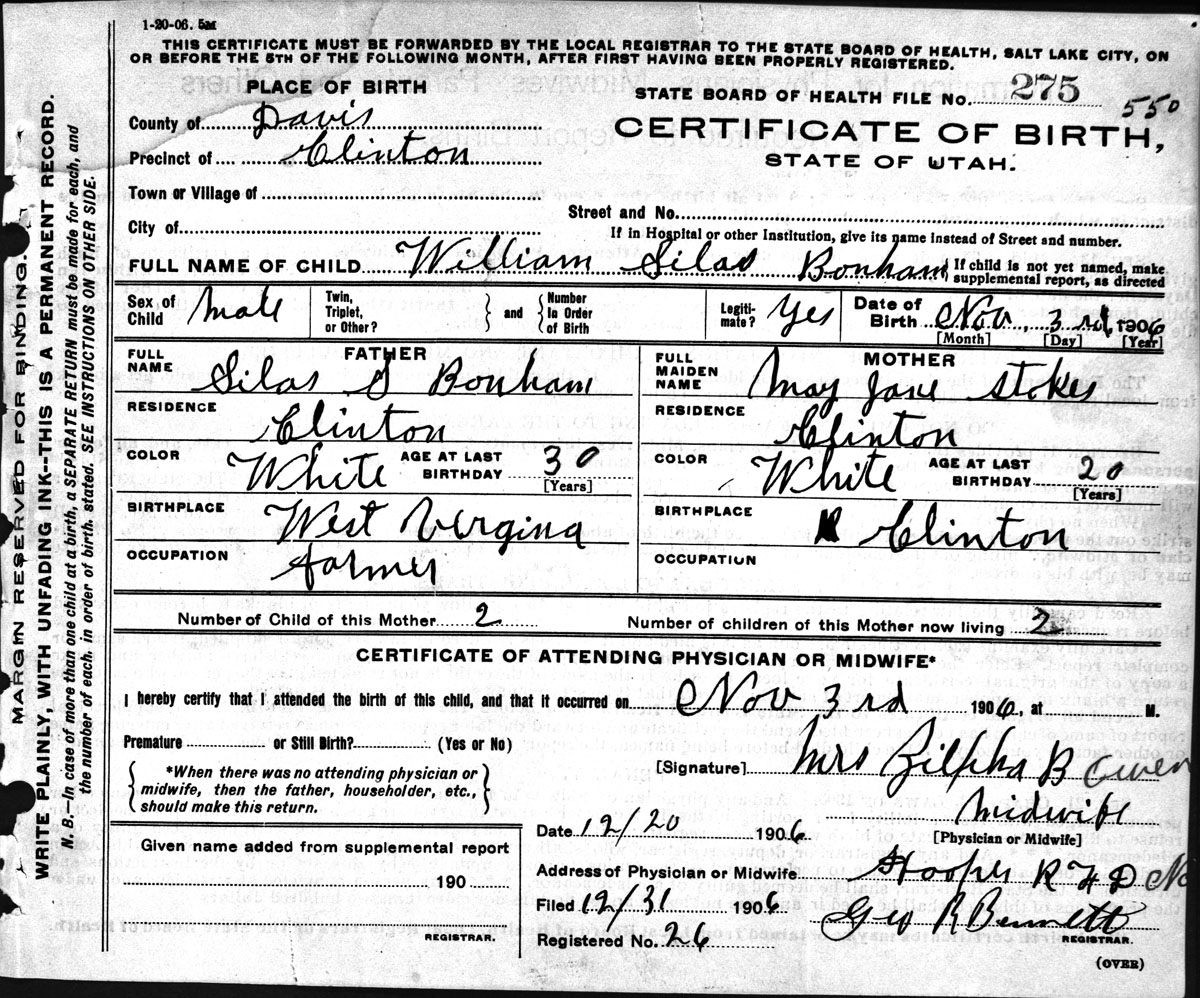 1-20-06. 5M
THIS CERTIFICATE MUST BE FORWARDED BY THE LOCAL REGISTRAR TO THE STATE BOARD OF HEALTH, SALT LAKE CITY, ON
OR BEFORE THE 5TH OF THE FOLLOWING MONTH, AFTER FIRST HAVING BEEN PROPERLY REGISTERED.
PLACE OF BIRTH
STATE BOARD OF HEALTH FILE No. 275 550
County of Davis
CERTIFICATE OF BIRTH,
Precinct of Clinton
STATE OF UTAH.
Town or Village of
Street and No.
City of
If in Hospital or other Institution, give its name instead of Street and number.
FULL NAME OF CHILD William Silas Bonham { If child is not yet named, make
supplemental report, as directed
Sex of Child Male
Twin, Triplet, or Other? } and { Number In Order of Birth
Legitimate? Yes
Date of Birth Nov, 3rd, 1906
[Month] [Day] [Year]
FATHER
FULL NAME Silas S Bonham
RESIDENCE Clinton
COLOR White AGE AT LAST BIRTHDAY 30
[Years]
BIRTHPLACE West Vergina
OCCUPATION Farmer
MOTHER
FULL MAIDEN NAME May Jane Stokes
RESIDENCE Clinton
COLOR White AGE AT LAST BIRTHDAY 20
[Years]
BIRTHPLACE Clinton
OCCUPATION
Number of Child of this Mother 2 Number of children of this Mother now living 2
CERTIFICATE OF ATTENDING PHYSICIAN OR MIDWIFE*
I hereby certify that I attended the birth of this child, and that it occurred on Nov 3rd 1906, at M.
Premature or Still Birth? (Yes or No)
{ *When there was no attending physician or
midwife, then the father, householder, etc.,
should make this return. }
[Signature] Mrs Zilpha B Owen
Midwife
[Physician or Midwife]
Given name added from supplemental report
190
REGISTRAR.
Date 12/20 1906
Address of Physician or Midwife Hooper R F D No
Filed 12/31 1906 Geo R Bennett
Registered No. 26 REGISTRAR.
(OVER)
MARGIN RESERVED FOR BINDING.
WRITE PLAINLY, WITH UNFADING INK--THIS IS A PERMANENT RECORD.
N. B.--In case of more than one child at a birth, a SEPARATE RETURN must be made for each, and
the number of each, in order of birth, stated. SEE INSTRUCTIONS ON OTHER SIDE.